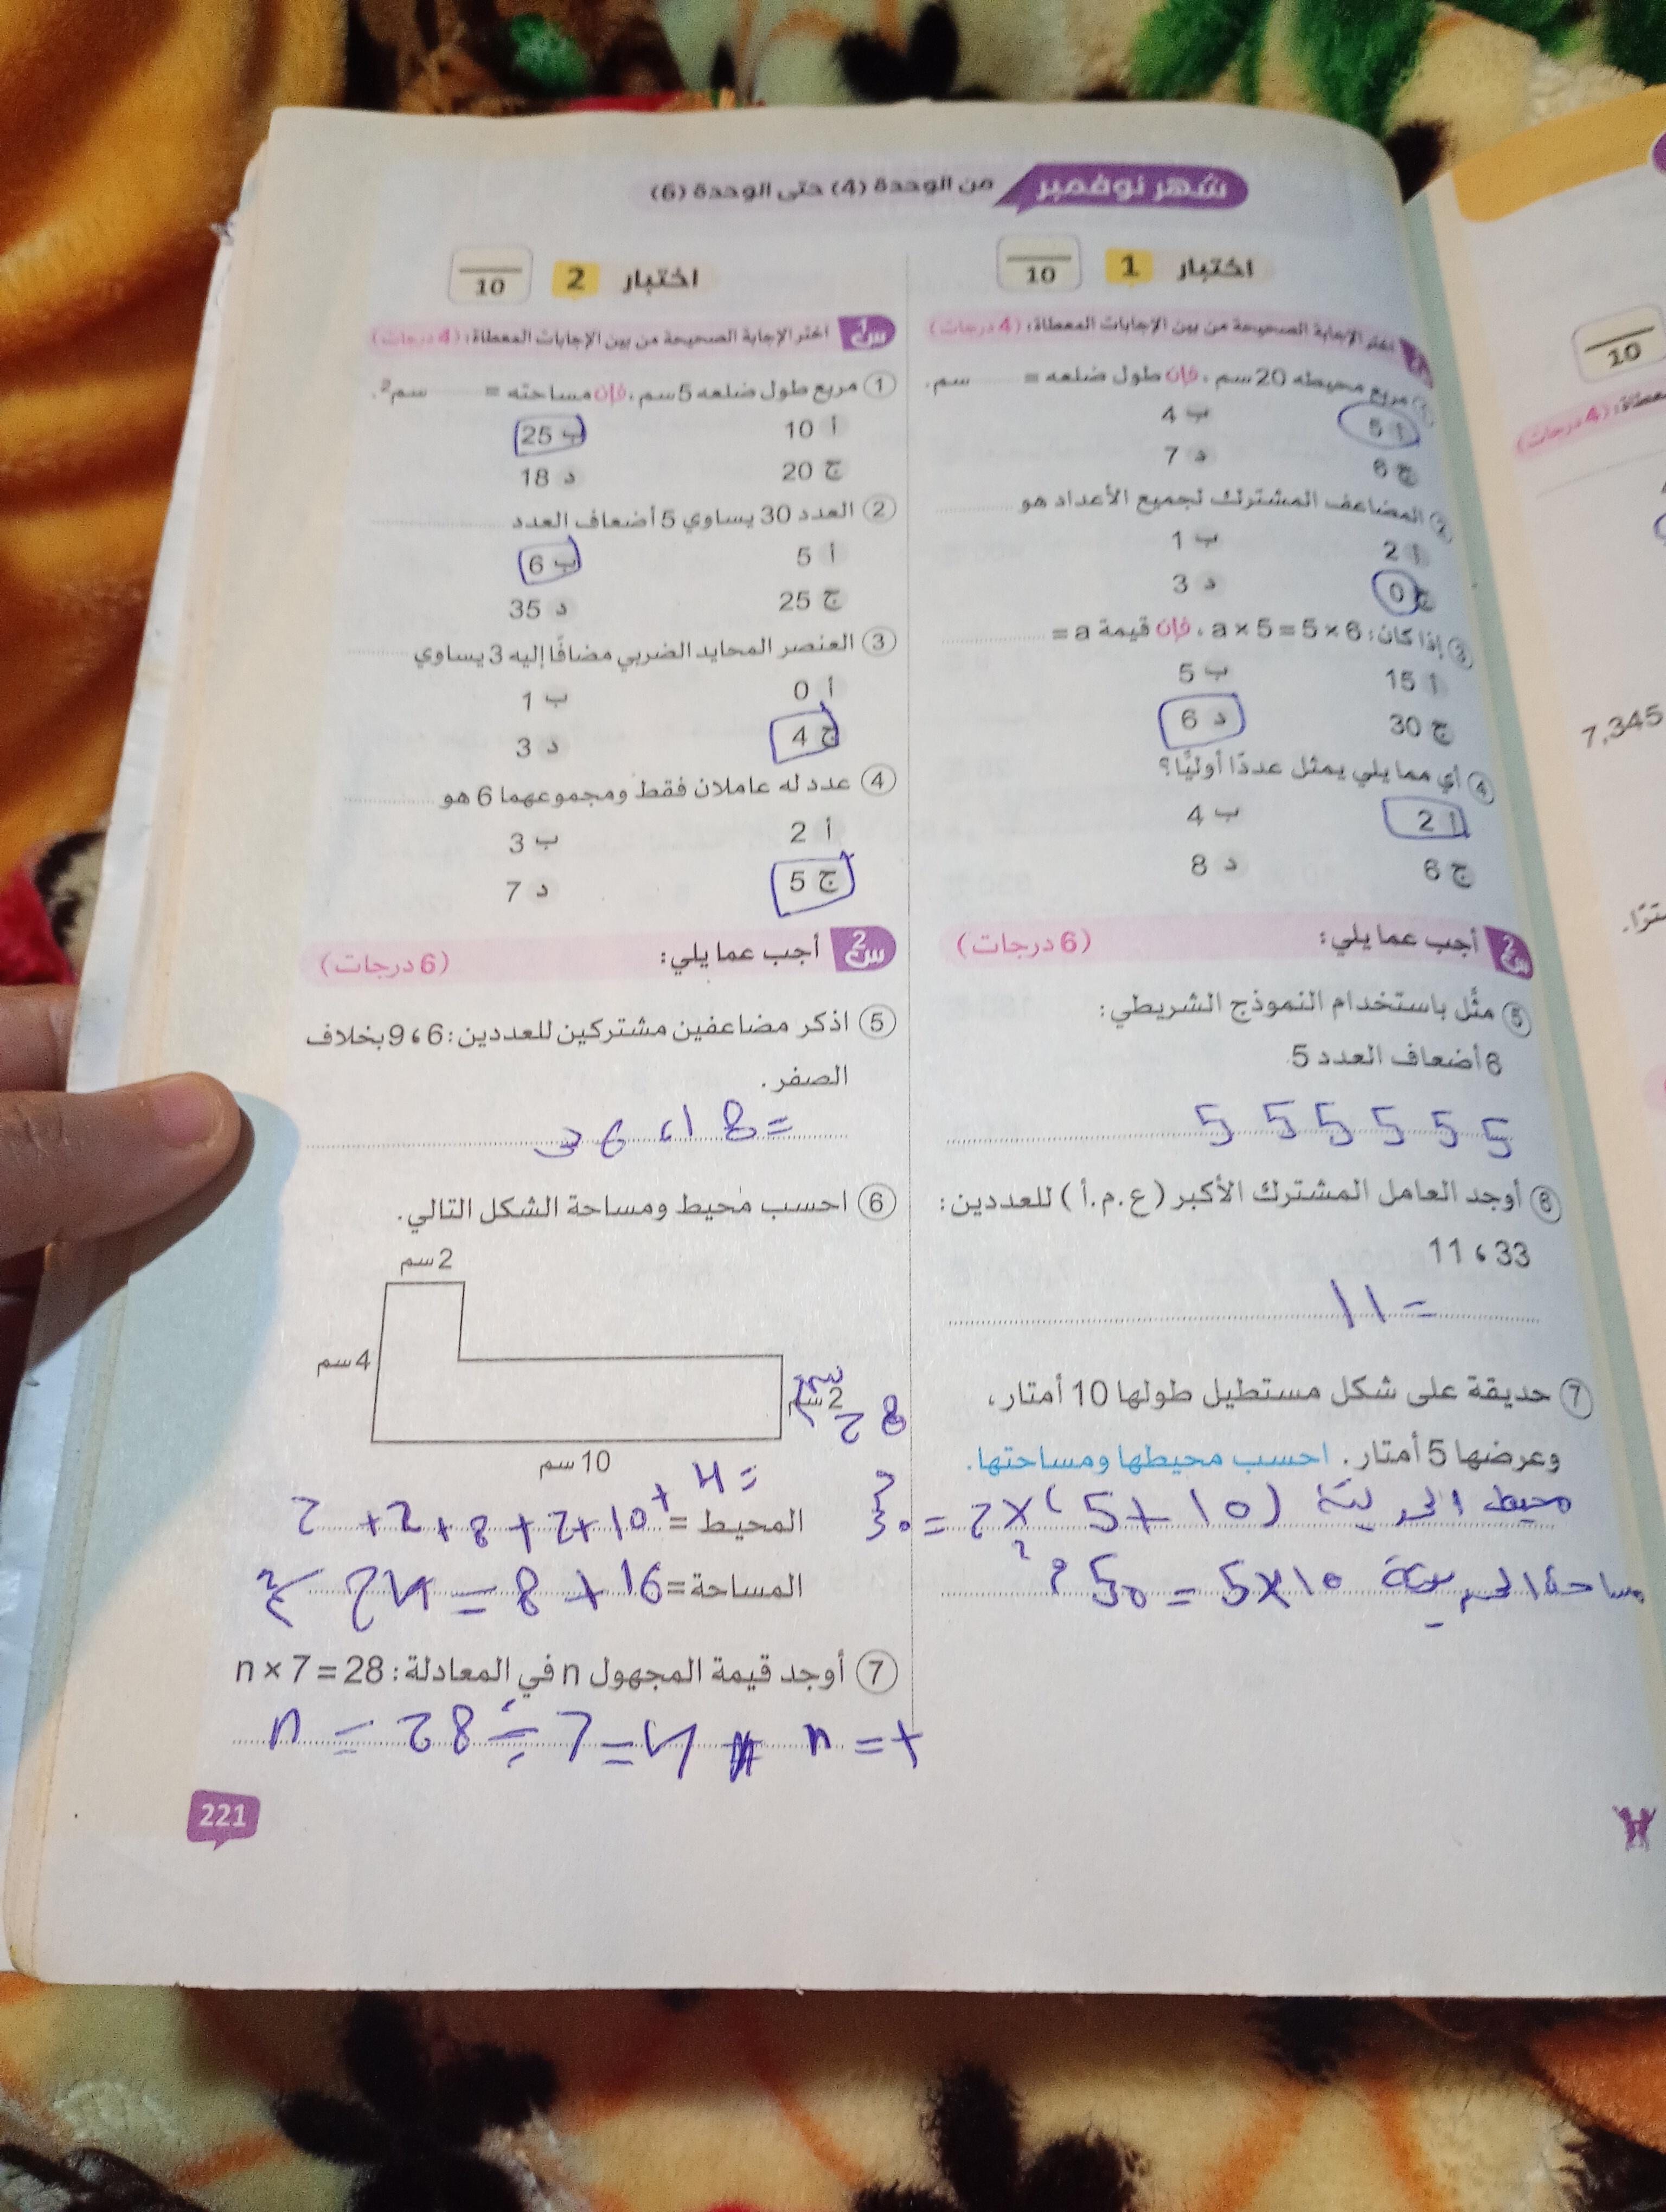 شهر نوفمبر من الوحدة (4) حتى الوحدة (6)
اختبار 1
10
س1 اختر الإجابة الصحيحة من بين الإجابات المعطاة: (4 درجات)
① مربع محيطه 20 سم، فإن طول ضلعه = ........ سم.
أ 5 ب 4
ج 6 د 7
② المضاعف المشترك لجميع الأعداد هو ........
أ 2 ب 1
ج 0 د 3
③ إذا كان: a × 5 = 5 × 6، فإن قيمة a = ........
أ 15 ب 5
ج 30 د 6
④ أي مما يلي يمثل عددًا أوليًا؟
أ 2 ب 4
ج 6 د 8
س2 أجب عما يلي: (6 درجات)
⑤ مثّل باستخدام النموذج الشريطي:
6 أضعاف العدد 5
5 5 5 5 5 5
⑥ أوجد العامل المشترك الأكبر (ع.م.أ) للعددين:
33 ، 11
= 11
⑦ حديقة على شكل مستطيل طولها 10 أمتار،
وعرضها 5 أمتار. احسب محيطها ومساحتها.
محيط الحديقة (10 + 5) × 2 = 30 م
مساحة الحديقة 10 × 5 = 50 م2
اختبار 2
10
س1 اختر الإجابة الصحيحة من بين الإجابات المعطاة: (4 درجات)
① مربع طول ضلعه 5 سم، فإن مساحته = ........ سم².
أ 10 ب 25
ج 20 د 18
② العدد 30 يساوي 5 أضعاف العدد ........
أ 5 ب 6
ج 25 د 35
③ العنصر المحايد الضربي مضافًا إليه 3 يساوي ........
أ 0 ب 1
ج 4 د 3
④ عدد له عاملان فقط ومجموعهما 6 هو ........
أ 2 ب 3
ج 5 د 7
س2 أجب عما يلي: (6 درجات)
⑤ اذكر مضاعفين مشتركين للعددين: 6 ، 9 بخلاف
الصفر.
= 18 ، 36
⑥ احسب محيط ومساحة الشكل التالي.
2 سم
4 سم
2 سم
28 سم
10 سم
= 4 +
المحيط = 10 + 2 + 8 + 2 + 2
المساحة = 16 + 8 = 24 سم2
⑦ أوجد قيمة المجهول n في المعادلة: n × 7 = 28
n = 28 ÷ 7 = 4 n =
221
10
(4 درجات)
7,345